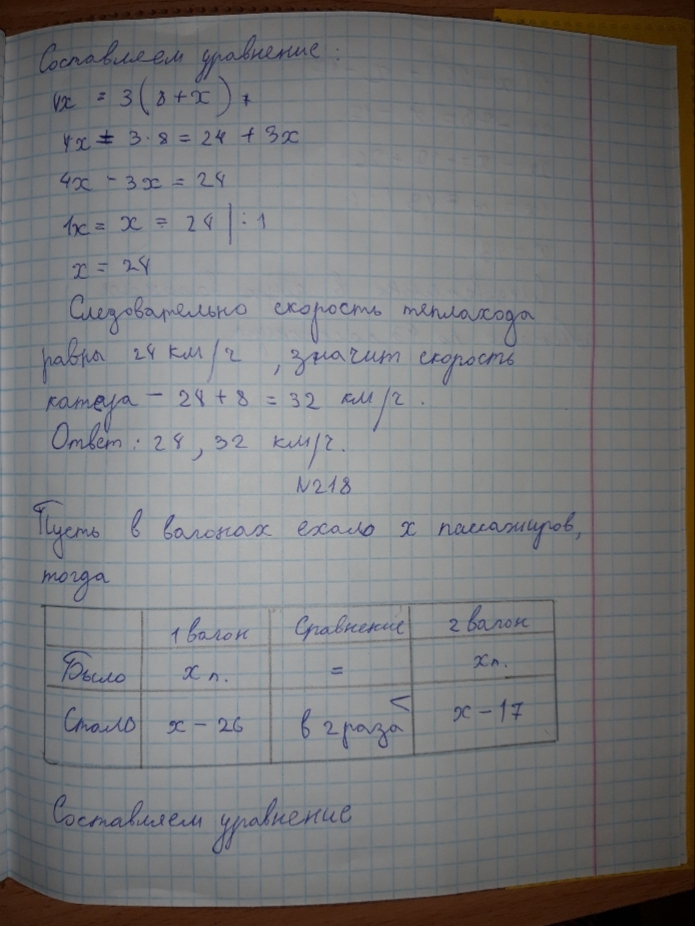 Составляем уравнение:
4x = 3(8+x)
4x = 3·8 = 24 + 3x
4x - 3x = 24
1x = x = 24 | : 1
x = 24
Следовательно скорость теплахода
равны 24 км/ч , значит скорость
катера - 24 + 8 = 32 км/ч.
Ответ: 24, 32 км/ч.
№218
Пусть в вагонах ехало x пассажиров,
тогда
1 вагон Сравнение 2 вагон
Было x п. = x п.
Стало x - 26 в 2 раза < x - 17
Составляем уравнение